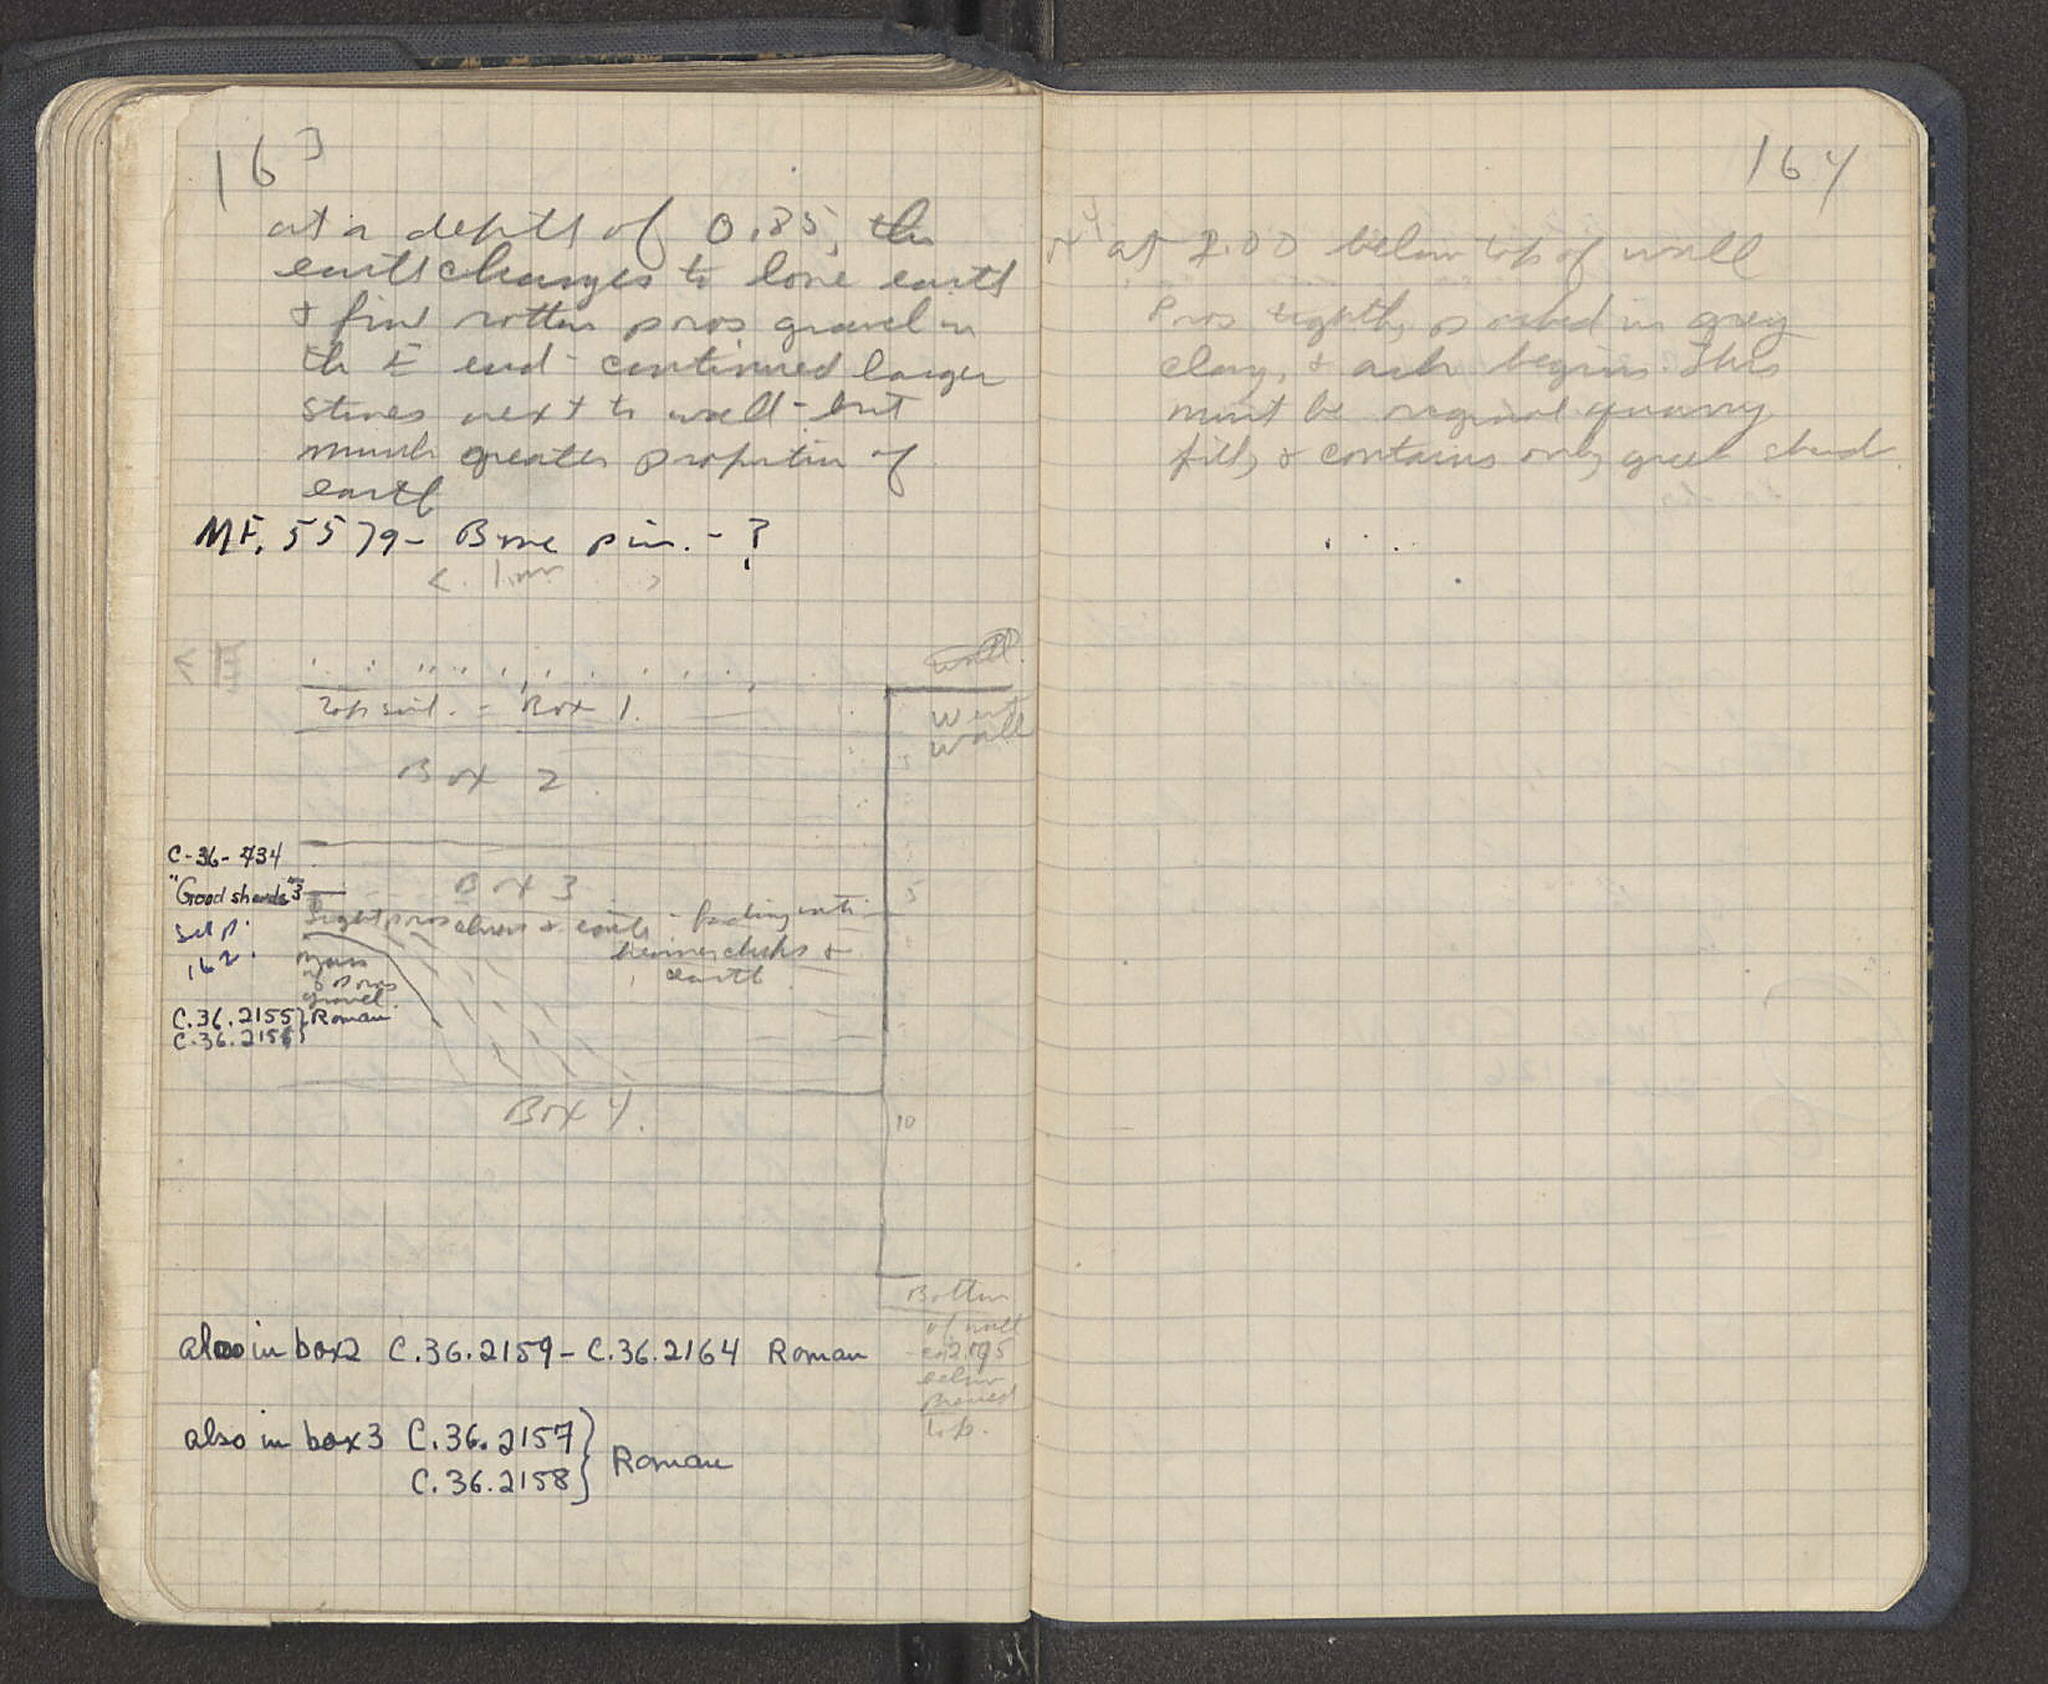 163
at a depth of 0.85, the
earth changes to lone earth
& fine rotten poros gravel in
the E end - continued larger
stones next to wall - but
much greater proportion of
earth
MF. 5579 - Bone pin. - ?
< . 1.m >
< E
wall.
Top soil. - Box 1.
West
Wall
Box 2
C-36-734
"Good sherds" 3
Box 3
5
see p.
162.
Light poros chips & earth - fading into
heavier chips &
earth
Mass
of poros
gravel.
C.36.2155 } Roman
C.36.2156 }
Box 4.
10
Bottom
of wall
2.95
below
present
top.
also in box 2 C.36.2159 - C.36.2164 Roman
also in box 3 C.36.2157 } Roman
C.36.2158 }
164
at 2.00 below top of wall
Poros tightly packed in grey
clay, & ash begins. This
must be original quarry
fill, & contains only greek sherds.